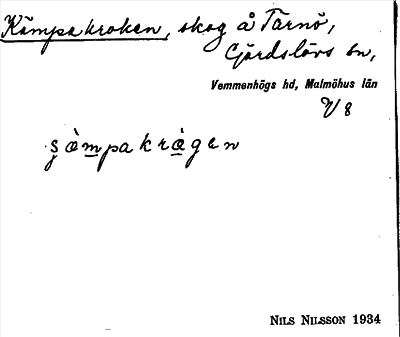 Kämpakroken, skog å Tärnö,
Gärdslövs sn,
Vemmenhögs hd, Malmöhus län
V 8
NILS NILSSON 1934